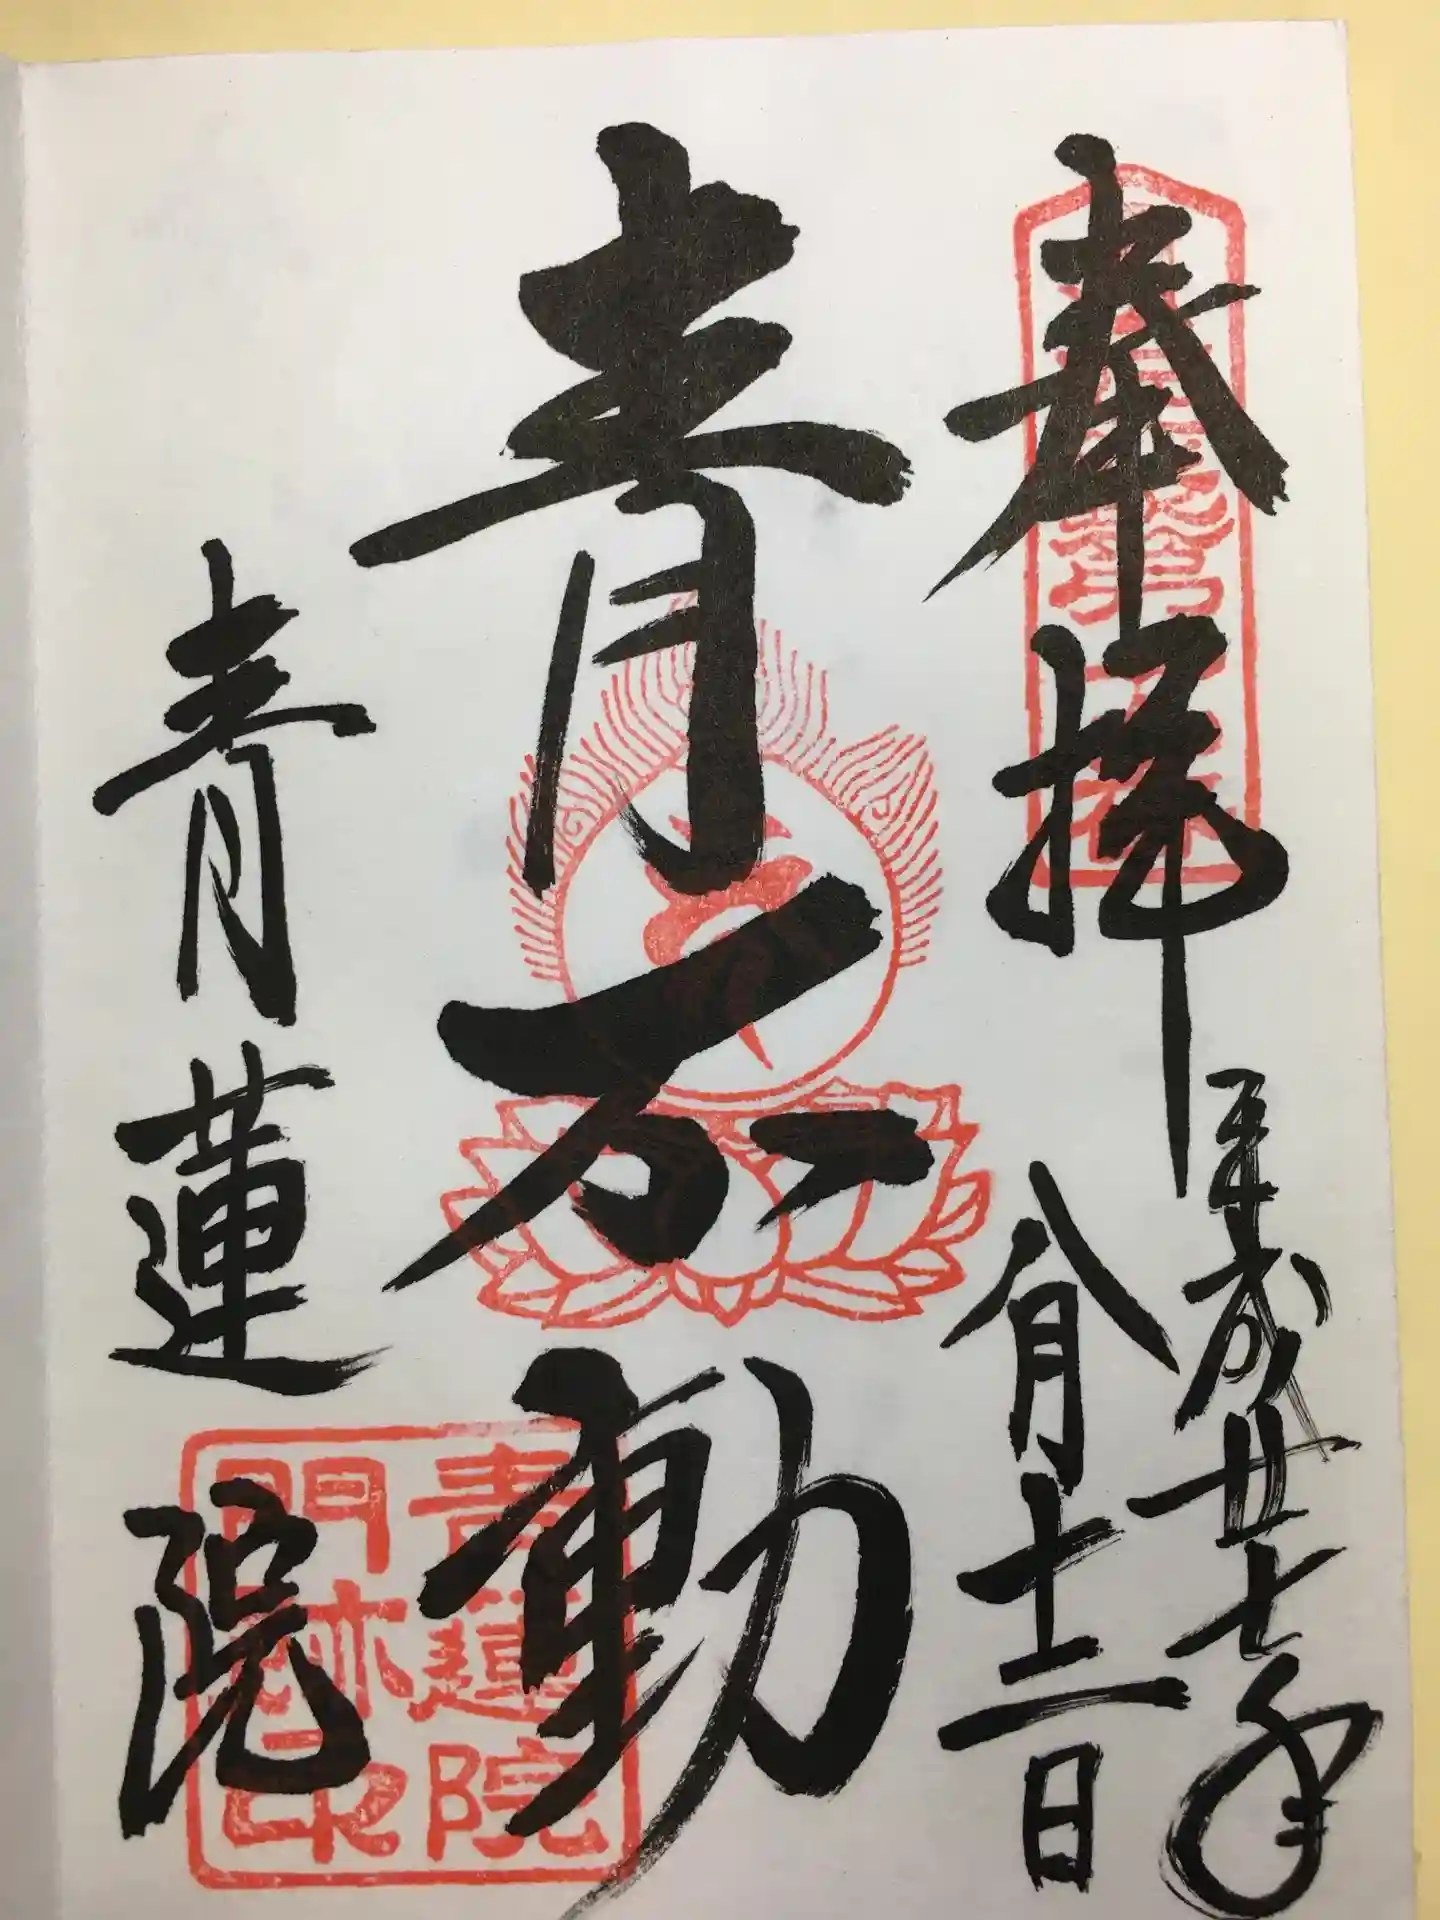 奉拝
平成廿七年
八月十二日
青不動
青蓮院
青蓮院
門跡之印